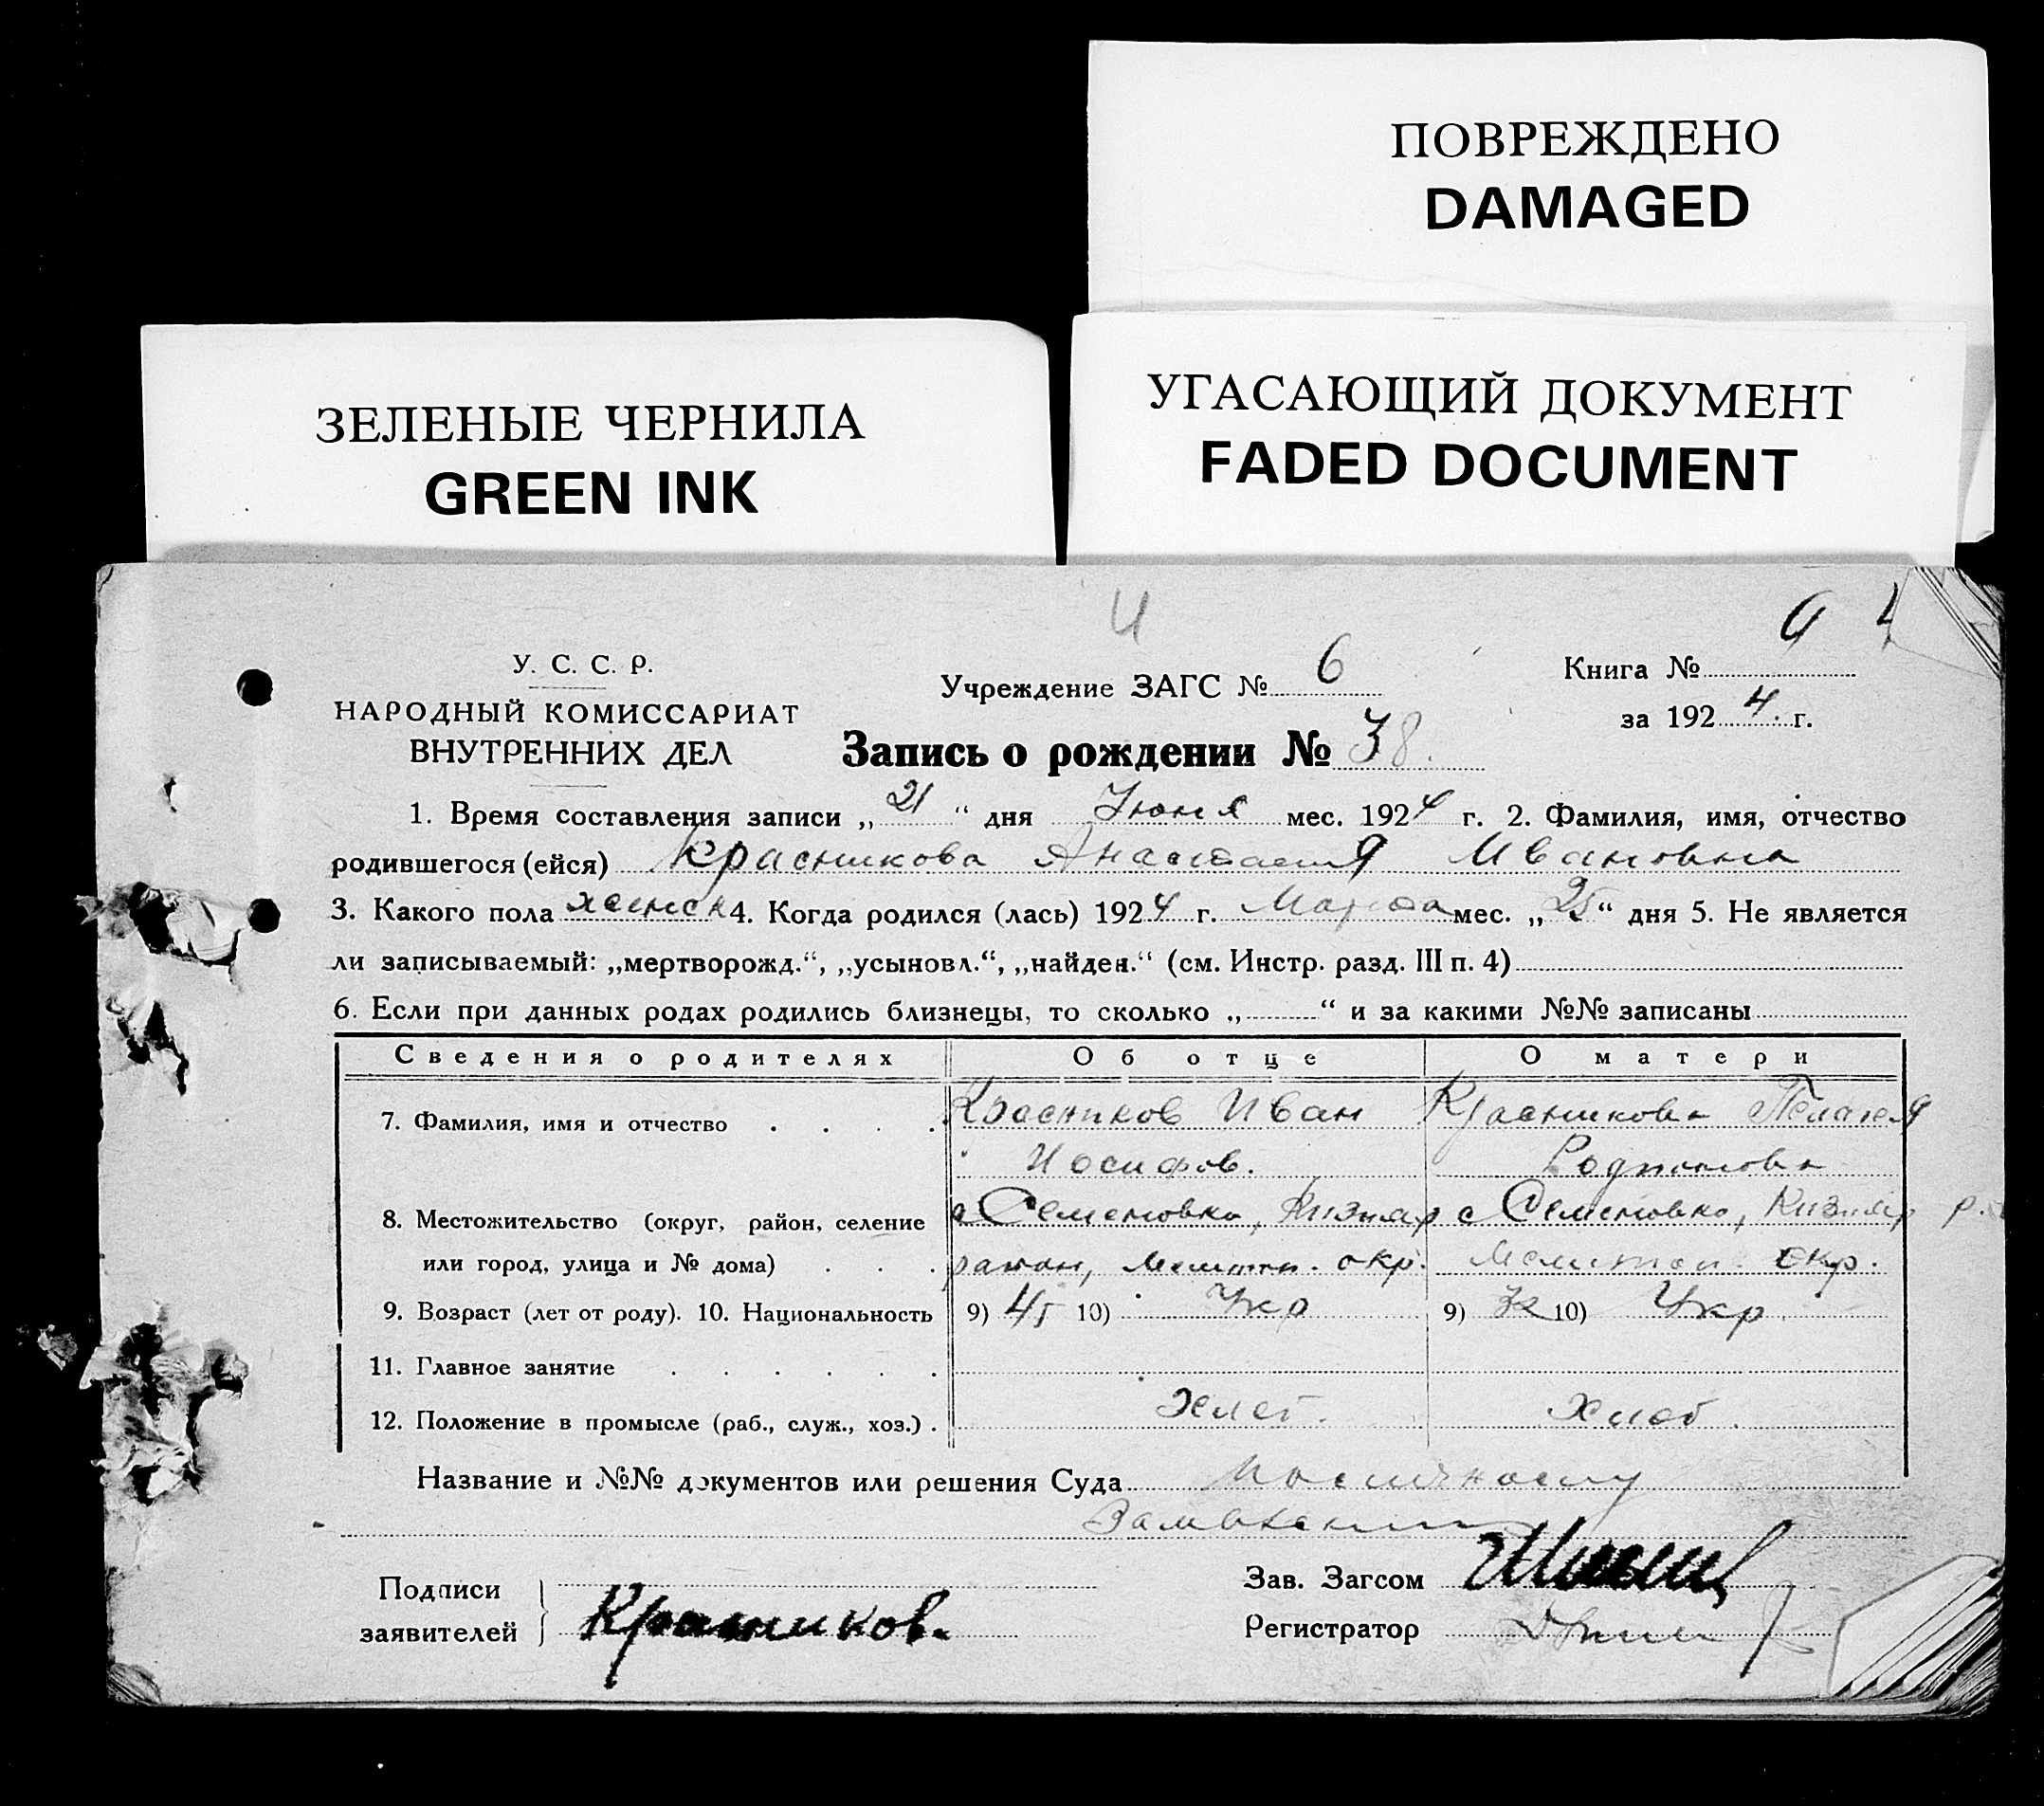 ПОВРЕЖДЕНО
DAMAGED
ЗЕЛЕНЫЕ ЧЕРНИЛА
GREEN INK
УГАСАЮЩИЙ ДОКУМЕНТ
FADED DOCUMENT
У. С. С. Р.
НАРОДНЫЙ КОМИССАРИАТ
ВНУТРЕННИХ ДЕЛ
Учреждение ЗАГС № 6
Книга №
за 1924 г.
Запись о рождении № 38.
1. Время составления записи „21“ дня Июня мес. 1924 г. 2. Фамилия, имя, отчество
родившегося (ейся) Красникова Анастасия Ивановна
3. Какого пола женск 4. Когда родился (лась) 1924 г. Марта мес. „25“ дня 5. Не является
ли записываемый: „мертворожд.“, „усыновл.“, „найден.“ (см. Инстр. разд. III п. 4)
6. Если при данных родах родились близнецы, то сколько „ “ и за какими №№ записаны
Сведения о родителях Об отце О матери
7. Фамилия, имя и отчество Красников Иван Красникова Пелагея
Иосифов. Родионовна
8. Местожительство (округ, район, селение с Семеновка, Кизияр с Семеновка, Кизияр р.
или город, улица и № дома) район, Мелитоп. окр. Мелитоп. окр.
9. Возраст (лет от роду). 10. Национальность 9) 45 10) Укр 9) 10) Укр
11. Главное занятие
12. Положение в промысле (раб., служ., хоз.) Хлеб. Хлеб.
Название и №№ документов или решения Суда
Подписи
заявителей Красников.
Зав. Загсом
Регистратор